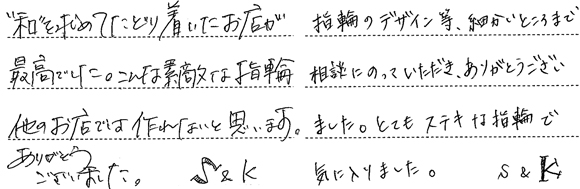 "和"を求めてたどり着いたお店が
最高でした。こんな素敵な指輪
他のお店では作れないと思います。
ありがとう
ございました。 S & K
指輪のデザイン等、細かいところまで
相談にのっていただき、ありがとうござい
ました。とてもステキな指輪で
気に入りました。 S & K